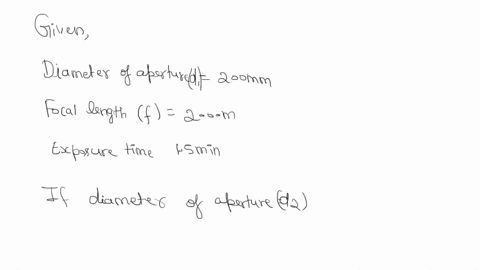 Given,
Diameter of aperture(d1)= 200mm
Focal length (f) = 2000m
Exposure time 1.5min
If diameter of aperture (d2)